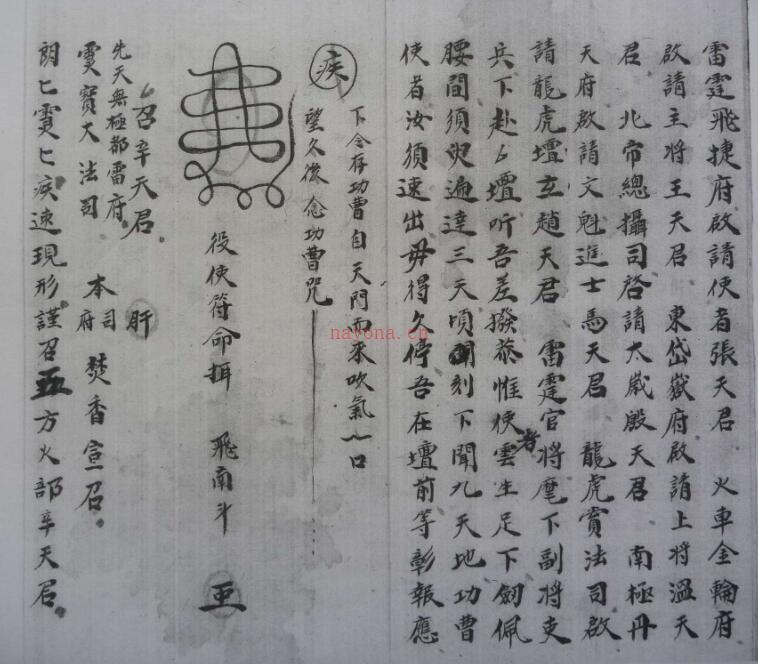 雷霆飛捷府啟請使者張天君　火車金輪府
啟請主將王天君　東岱嶽府啟請上將溫天
君　北帝總攝司啓請太歲殷天君　南極丹
天府啟請文魁進士馬天君　龍虎賞法司啟
請龍虎壇玄趙天君　雷霆官將麾下副將吏
兵下赴 壇听吾差撥恭惟使者雲生足下劍佩
腰間須臾遍達三天頃刻下聞九天地功曹
使者汝須速出毋得久停吾在壇前等彰報應
下令存功曹自天門而來吹氣一口
疾　望久後念功曹咒
役使符命 　飛南斗
召辛天君
先天無極都雷府
霛寶大法司　本司府　焚香宣召　肝
朗匕霛匕疾速現形謹召五方火部辛天君
nayona.cn